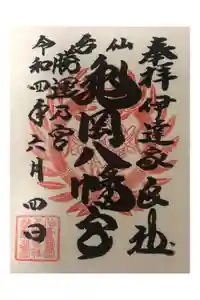 奉拝伊達家社
仙台
亀岡八幡宮
勝運乃宮
令和四年六月四日